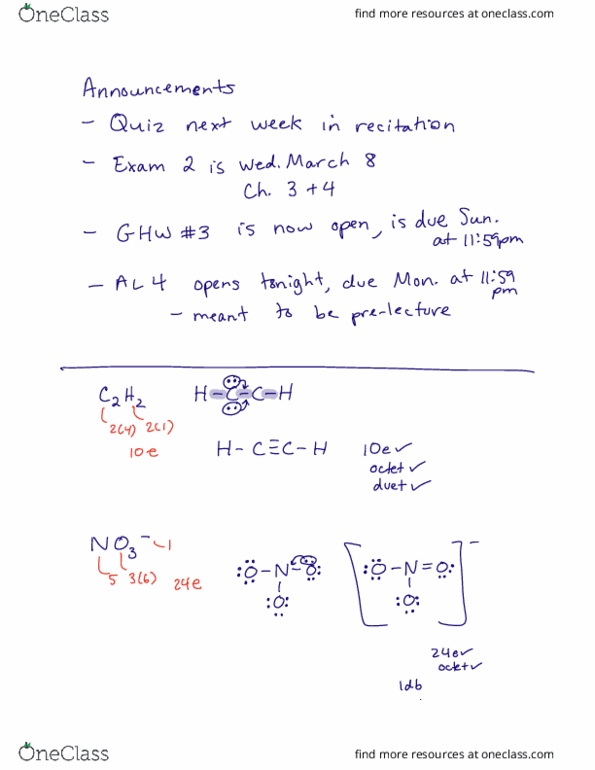 OneClass
find more resources at oneclass.com
Announcements
- Quiz next week in recitation
- Exam 2 is wed. March 8
Ch. 3 + 4
- GHW #3 is now open, is due Sun.
at 11:59pm
- AL 4 opens tonight, due Mon. at 11:59
pm
- meant to be pre-lecture
C₂H₂ H-C-C-H
2(4) 2(1)
10e
H-C≡C-H 10e✓
octet ✓
duet ✓
NO₃⁻ -1
5 3(6) 24e
:Ö-N=O: [:Ö-N=O:]⁻
:O: :O:
24e✓
octet✓
1db
OneClass
find more resources at oneclass.com